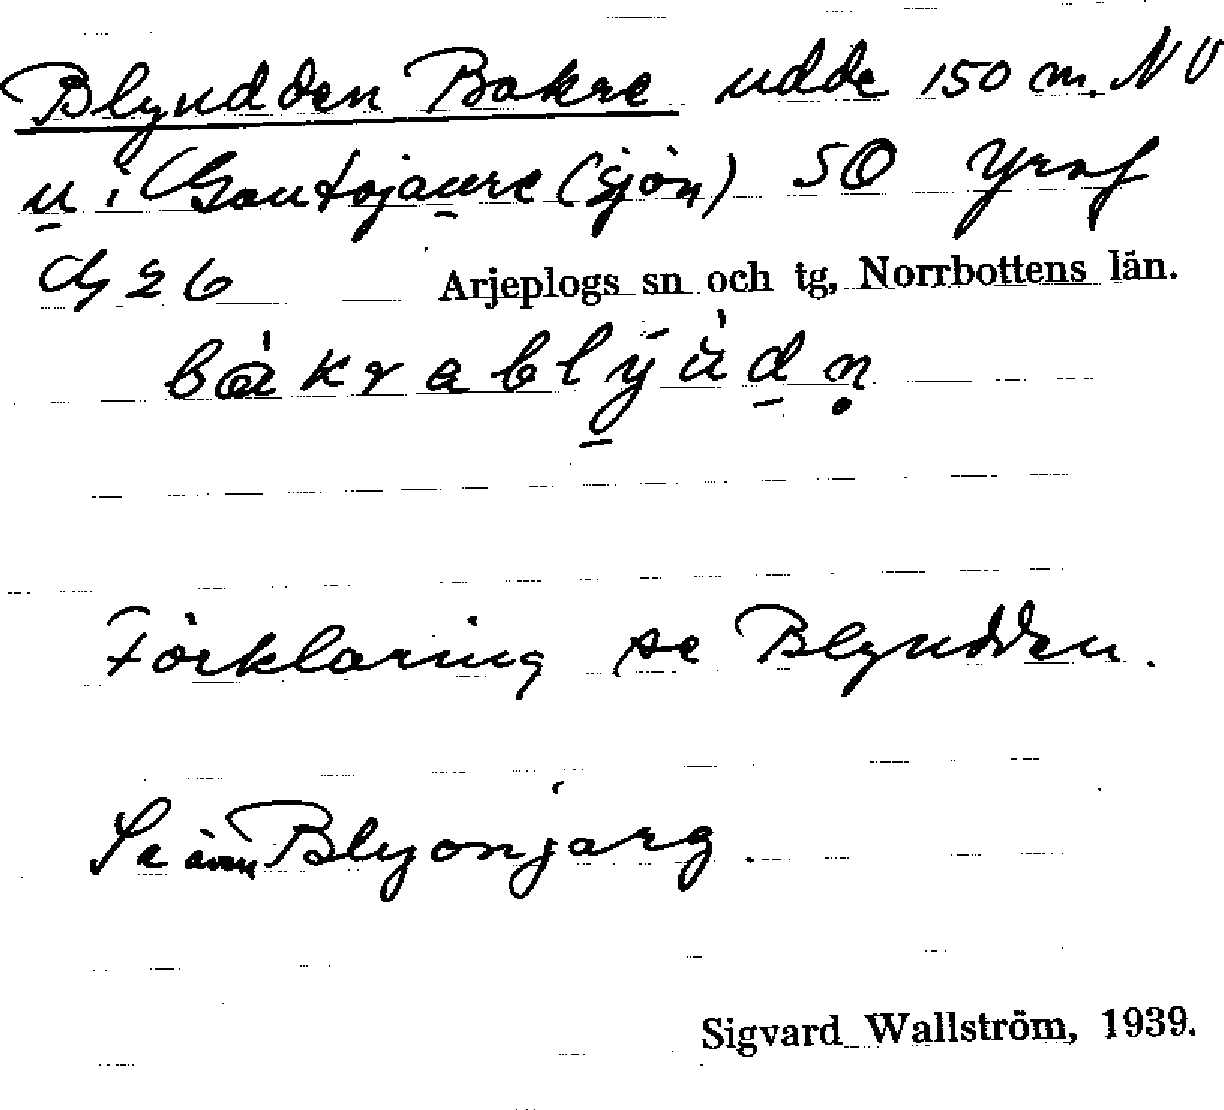 Blyudden Bakre udde 150 m. NV
u i Gautojaure (sjön) SO Yraf
Cg 26 Arjeplogs sn och tg, Norrbottens län.
bàkrablȳùdn̥
Förklaring se Blyudden.
Se även Blyonjarg.
Sigvard Wallström, 1939.